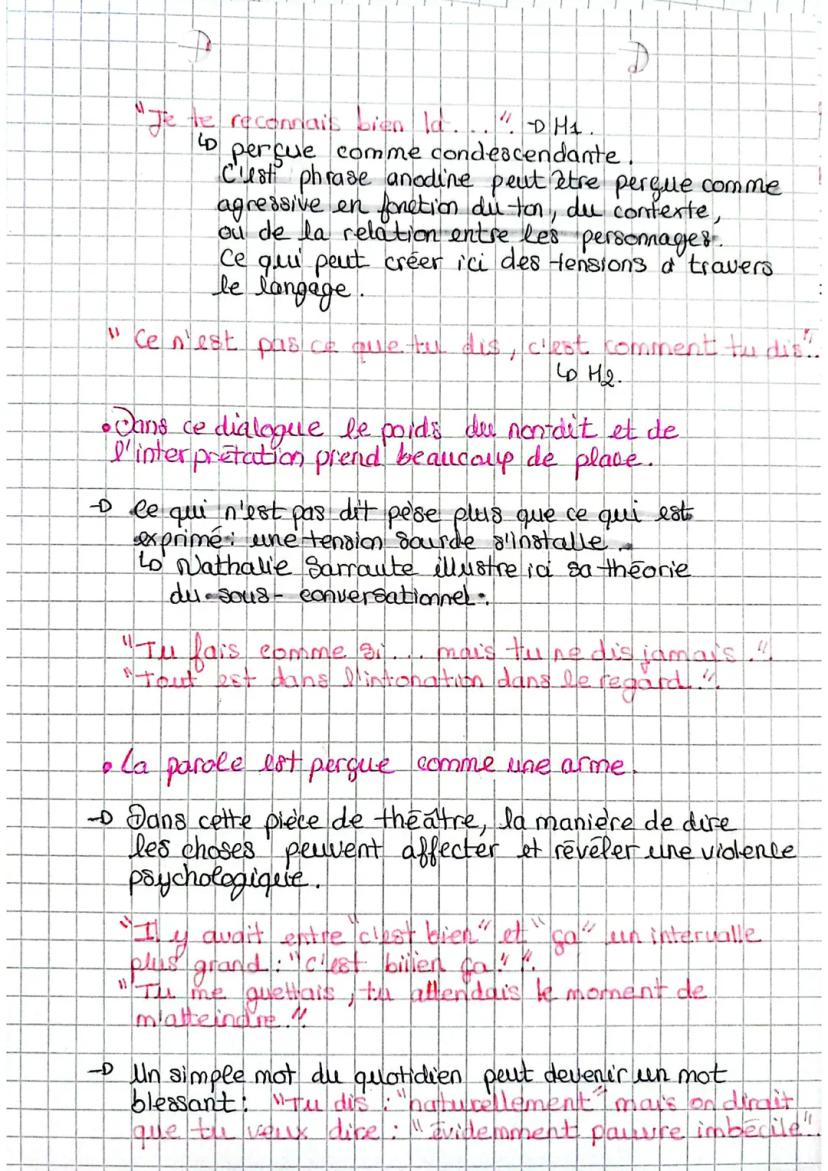 "Je te reconnais bien là...". → H1.
↳ perçue comme condescendante.
C'est phrase anodine peut être perçue comme
agressive en fonction du ton, du contexte,
ou de la relation entre les personnages.
Ce qui peut créer ici des tensions à travers
le langage.
"Ce n'est pas ce que tu dis, c'est comment tu dis".
↳ H2.
• Dans ce dialogue le poids du non-dit et de
l'interprétation prend beaucoup de place.
→ Ce qui n'est pas dit pèse plus que ce qui est
exprimé : une tension sourde s'installe.
↳ Nathalie Sarraute illustre ici sa théorie
du sous-conversationnel.
"Tu fais comme si... mais tu ne dis jamais."
"Tout est dans l'intonation dans le regard."
• La parole est perçue comme une arme.
→ Dans cette pièce de théâtre, la manière de dire
les choses peuvent affecter et révéler une violence
psychologique.
"Il y avait entre "c'est bien" et "ça" un intervalle
plus grand : "c'est biiien ça."".
"Tu me guettais, tu attendais le moment de
m'atteindre."
→ Un simple mot du quotidien peut devenir un mot
blessant : "Tu dis : "naturellement" mais on dirait
que tu veux dire : "évidemment pauvre imbécile".